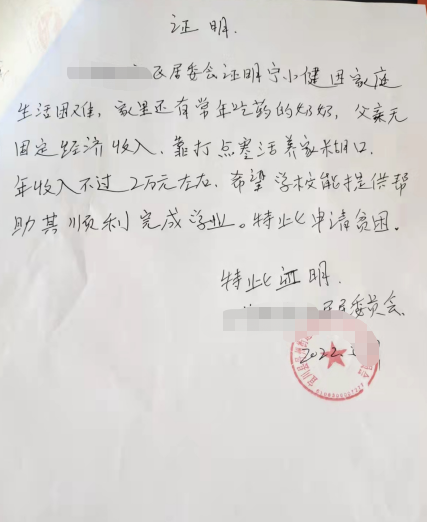 证明.
民居委会证明宁小健因家庭
生活困难，家里还有常年吃药的奶奶，父亲无
固定经济收入.靠打点零活养家糊口.
年收入不过2万元左右.希望学校能提供帮
助其顺利完成学业。特此申请贫困.
特此证明.
居委员会.
2022.